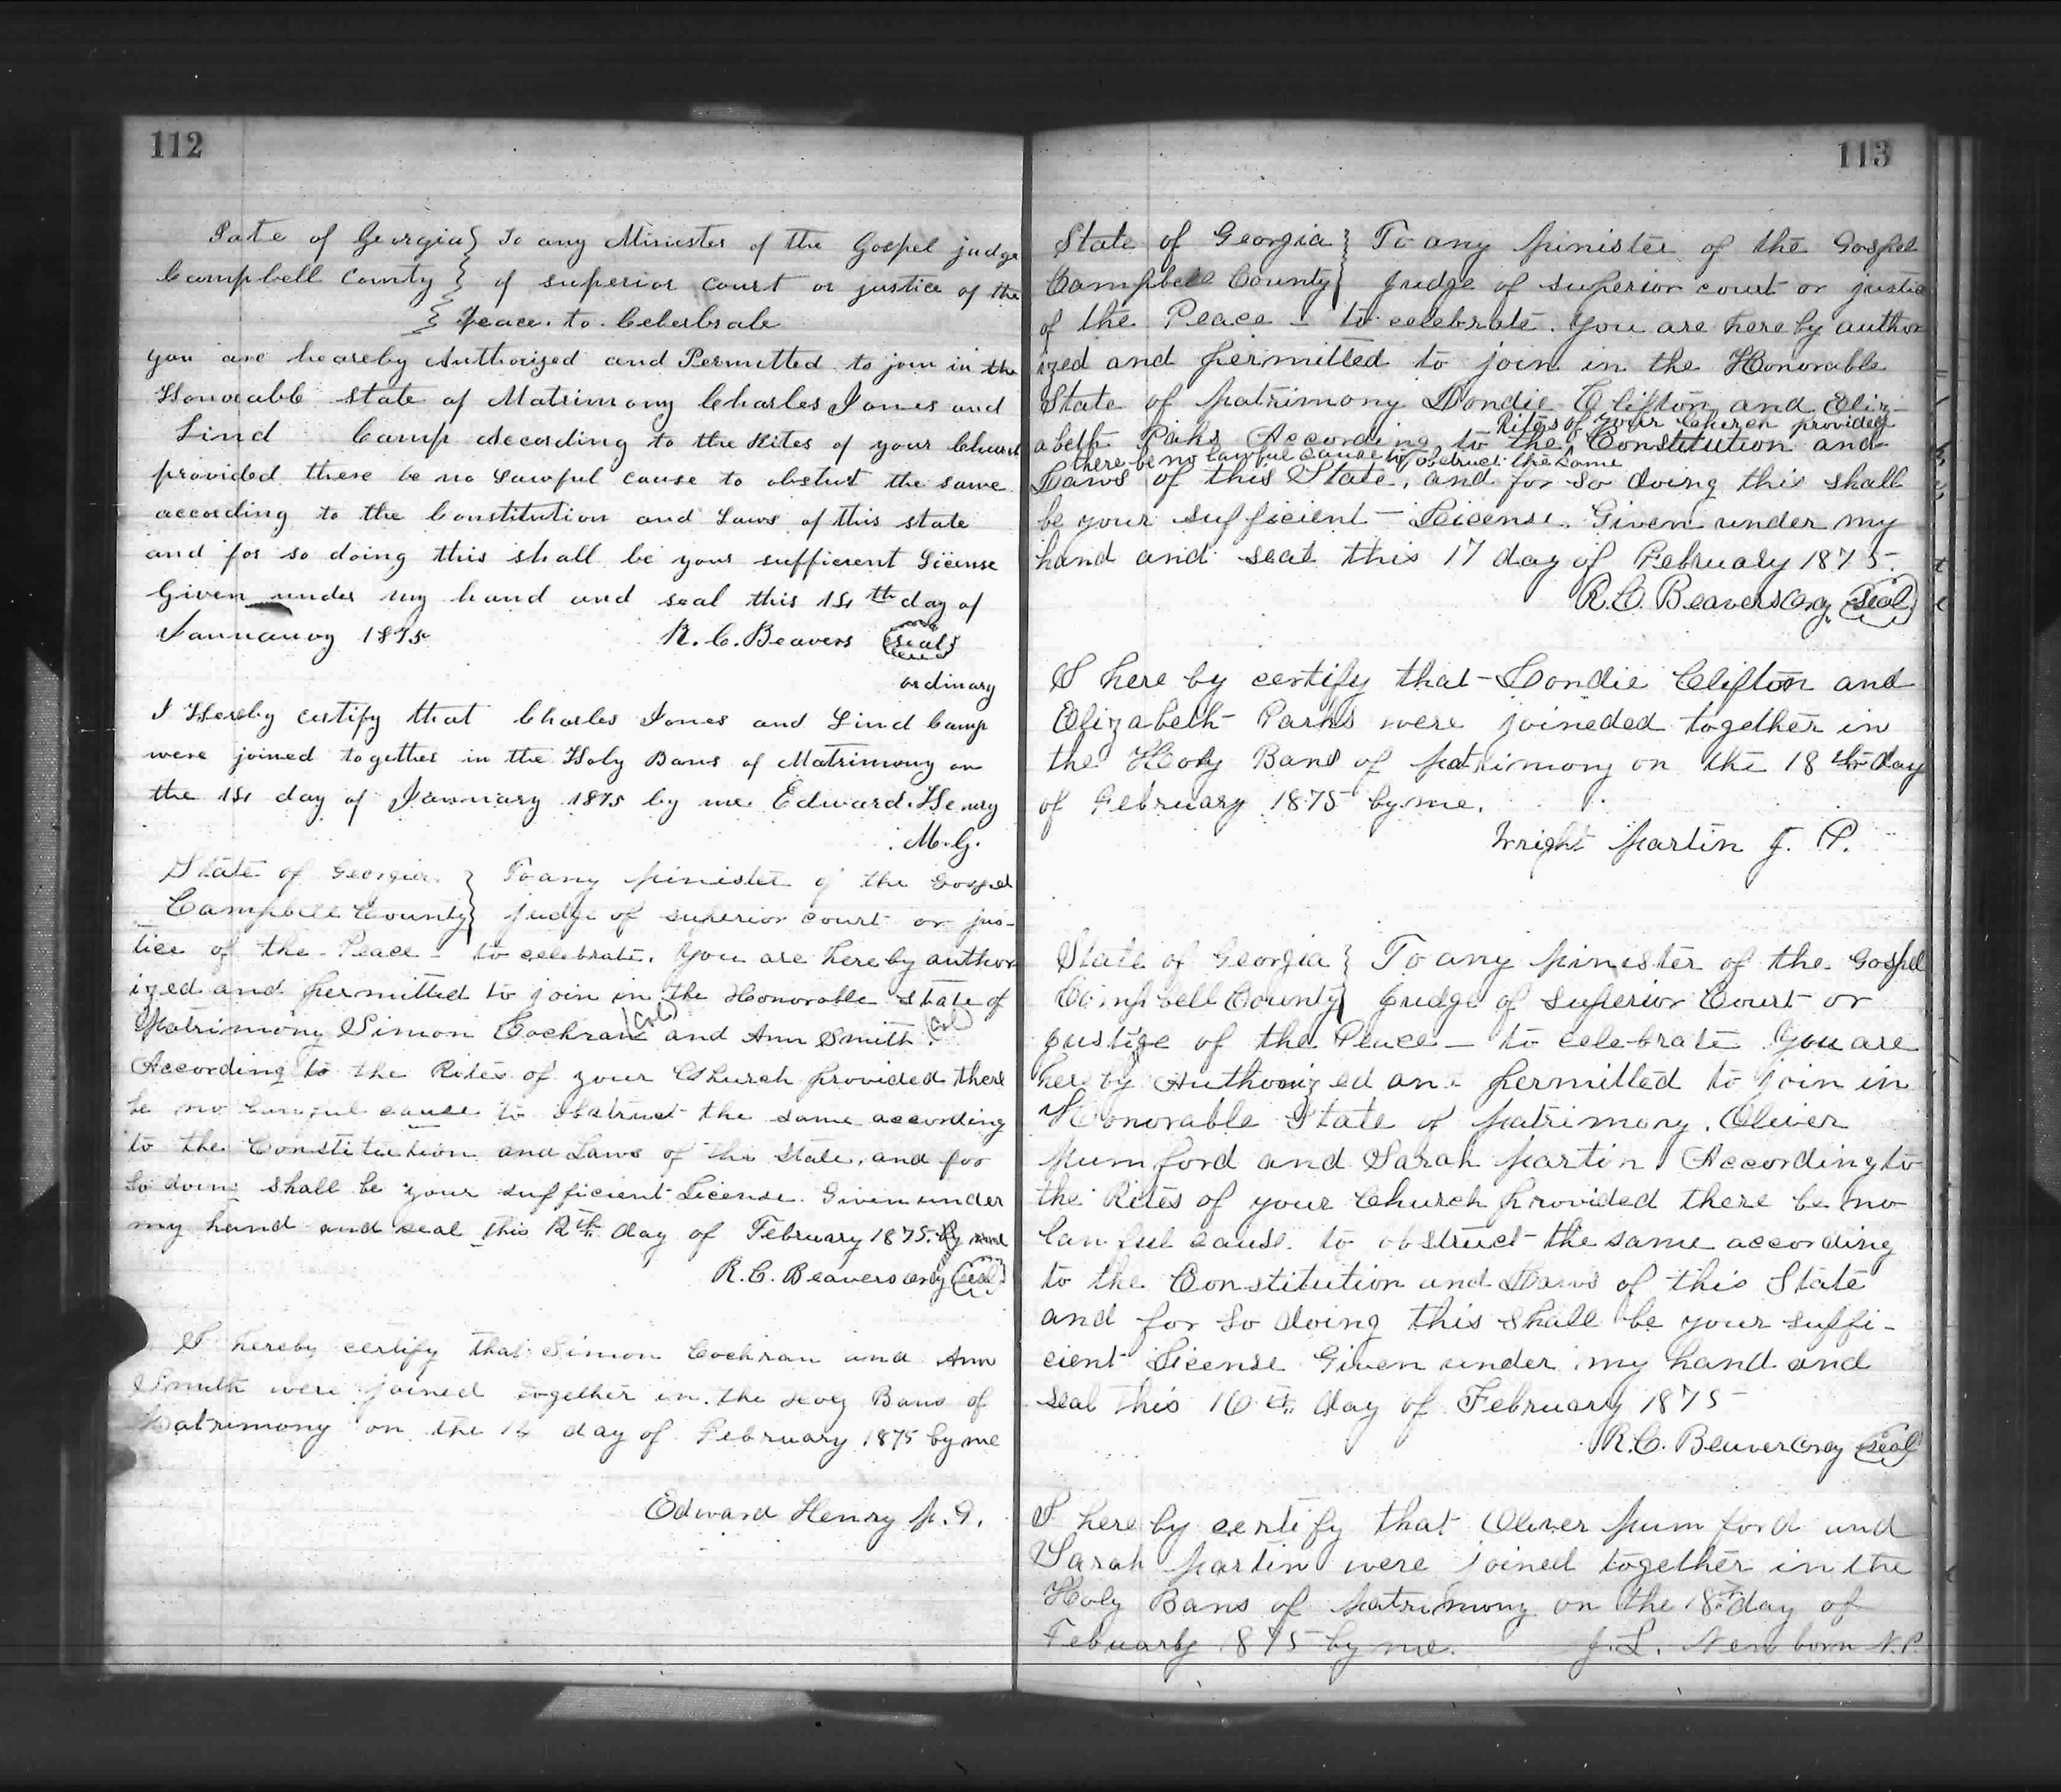 112
State of Georgia } To any Minister of the Gospel judge
Campbell County } of superior court or justice of the
} Peace. to. Celerbrate
you are heareby Authorized and Permitted to join in the
Honorable state of Matrimony Charles Jones and
Lind Camp according to the Rites of your Church
provided there be no Lawful cause to obstrut the same
according to the Constitution and Laws of this state
and for so doing this shall be your sufficient License
Given under my hand and seal this 14th day of
Jannauoy 1875 R. C. Beavers (seal)
ordinary
I Hereby certify that Charles Jones and Lind Camp
were joined together in the Holy Bans of Matrimony on
the 14 day of January 1875 by me Edward. Henry
M.G.
State of Georgia } To any Minister of the Gospel
Campbell County } Judge of superior court or jus-
tice of the Peace - to celebrate. You are hereby author
ized and permitted to join in the Honorable State of
Matrimony Simon Cochran (Col) and Ann Smith. (Col)
According to the Rites of your Church provided there
be no lawful cause to obstruct the same according
to the Constitution and Laws of this State, and for
so doing shall be your sufficient License. Given under
my hand and seal this 12th day of February 1875.
R. C. Beavers Ordy (seal)
I hereby certify that Simon Cochran and Ann
Smith were joined together in the Holy Bans of
Matrimony on the 14 day of February 1875 by me
Edward Henry M. G.
113
State of Georgia } To any Minister of the Gospel
Campbell County } Judge of superior court or justice
of the Peace - to celebrate. You are here by author
ized and permitted to join in the Honorable
State of Matrimony Londie Clifton and Eliz-
Rites of your Church provided
abeth Paiks According to the Constitution and
there be no lawful cause to obstruct the same
Laws of this State, and for so doing this shall
be your sufficient License. Given under my
hand and seal this 17 day of February 1875.
R. C. Beavers Ordy. (Seal)
I here by certify that Londie Clifton and
Elizabeth Parks were joineded together in
the Holy Bans of Matrimony on the 18th day
of February 1875 by me.
Wright Martin J. P.
State of Georgia } To any Minister of the Gospel
Campbell County } Judge of Superior Court or
justice of the Peace - to celebrate You are
hereby Authorized and permitted to join in
Honorable State of Matrimony. Oliver
Mumford and Sarah Martin According to
the Rites of your Church provided there be no
lawful cause. to obstruct the same according
to the Constitution and Laws of this State
and for so doing this shall be your suffi-
cient License Given under my hand and
seal this 16th day of February 1875
R. C. Beaver Ordy (seal)
I here by certify that Oliver Mumford and
Sarah Martin were joined together in the
Holy Bans of Matrimony on the 18th day of
Febuarby 1875 by me. J. L. Newborn N.P.